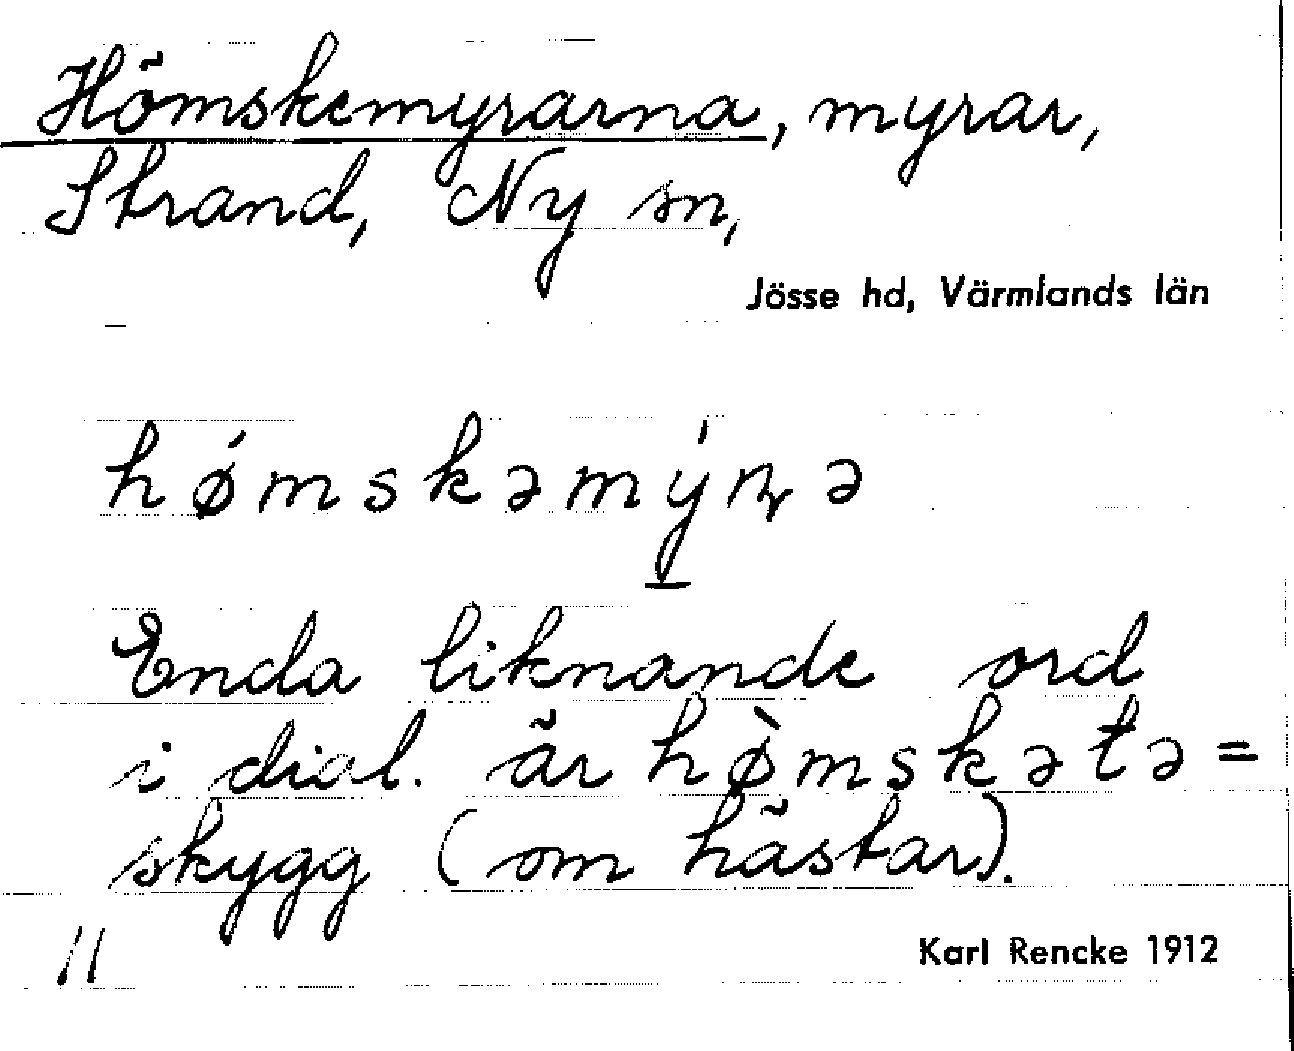 Hömskemyrarna, myrar,
Strand, Ny sn,
Jösse hd, Värmlands län
hǿmskəmýɳə
Enda liknande ord
i dial. är hø̀mskətə =
skygg (om hästar).
11
Karl Rencke 1912